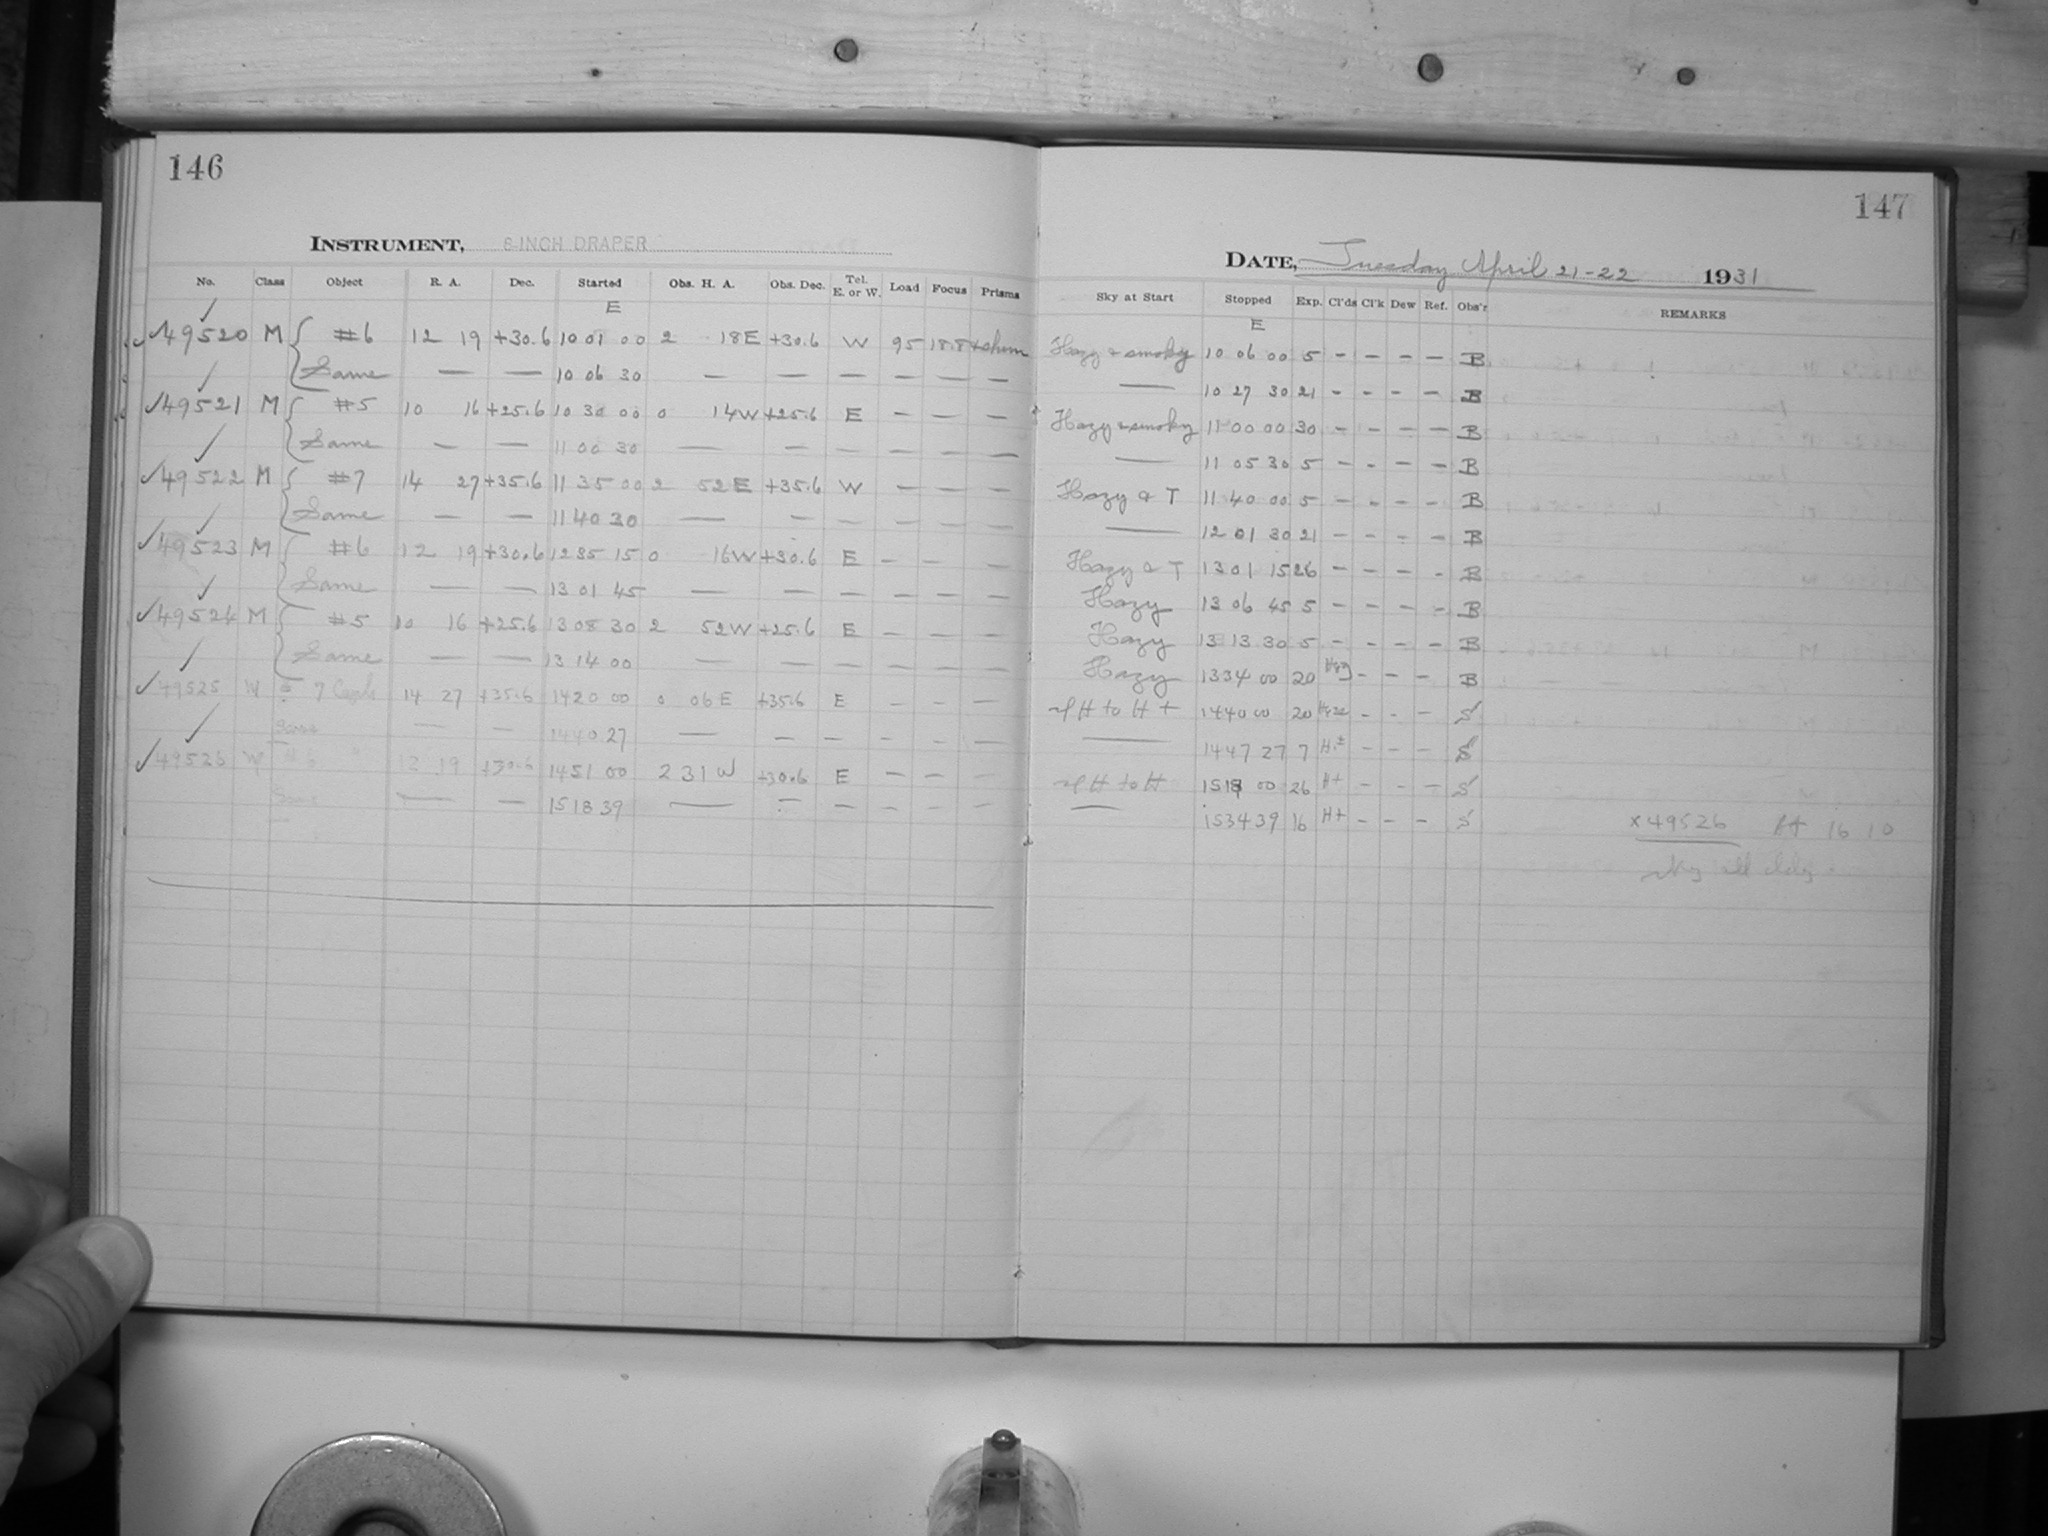 146
INSTRUMENT, 8-INCH DRAPER
No. Class Object R. A. Dec. Started Obs. H. A. Obs. Dec. Tel. E. or W. Load Focus Prisms
E
49520 M #6 12 19 +30.6 10 01 00 2 18E +30.6 W 95 18.8
Same — — 10 06 30 — — — — — —
49521 M #5 10 16 +25.6 10 30 00 0 14W +25.6 E — — —
Same — — 11 00 30 — — — — — —
49522 M #7 14 27 +35.6 11 35 00 2 52E +35.6 W — — —
Same — — 11 40 30 — — — — — —
49523 M #6 12 19 +30.6 12 35 15 0 16W +30.6 E — — —
Same — — 13 01 45 — — — — — —
49524 M #5 10 16 +25.6 13 08 30 2 52W +25.6 E — — —
Same — — 13 14 00 — — — — — —
49525 W 7 14 27 +35.6 14 20 00 0 06E +35.6 E — — —
Same — — 14 40 27 — — — — — —
49526 W #6 " 12 19 +30.6 14 51 00 2 31W +30.6 E — — —
Same — — 15 18 39 — — — — — —
147
DATE, Tuesday April 21-22 1931
Sky at Start Stopped Exp. Cl'ds Cl'k Dew Ref. Obs'r REMARKS
E
Hazy & smoky 10 06 00 5 — — — — B
— 10 27 30 21 — — — — B
Hazy & smoky 11 00 00 30 — — — — B
— 11 05 30 5 — — — — B
Hazy & T 11 40 00 5 — — — — B
— 12 01 30 21 — — — — B
Hazy & T 13 01 15 26 — — — — B
Hazy 13 06 45 5 — — — — B
Hazy 13 13 30 5 — — — — B
Hazy 13 34 00 20 Hazy — — — B
sl H to H + 14 40 00 20 Haze — — — S
— 14 47 27 7 H± — — — S
sl H to H 15 18 00 26 H+ — — — S
— 15 34 39 16 H+ — — — S
x 49526 16 10
Sky all cldy